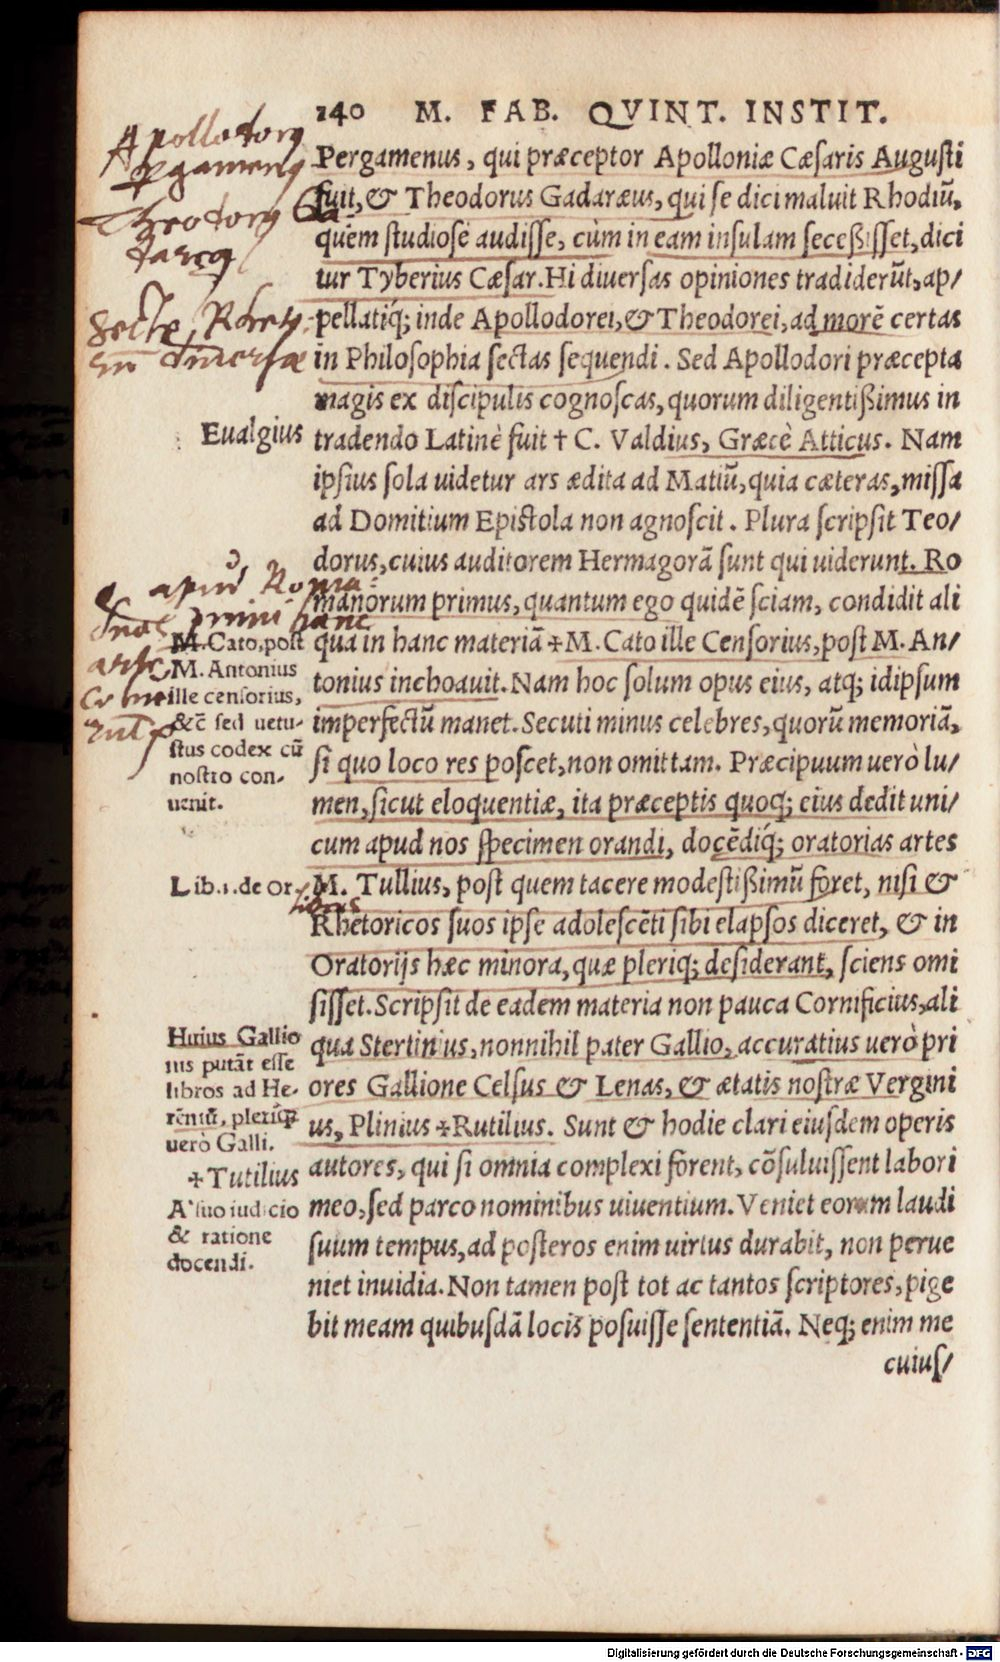 140 M. FAB. QVINT. INSTIT.
Pergamenus, qui præceptor Apolloniæ Cæsaris Augusti
fuit, & Theodorus Gadaræus, qui se dici maluit Rhodiũ,
quem studiosè audisse, cùm in eam insulam secessisset, dici
tur Tyberius Cæsar. Hi diuersas opiniones tradiderũt, ap/
pellatiq́; inde Apollodorei, & Theodorei, ad morẽ certas
in Philosophia sectas sequendi. Sed Apollodori præcepta
magis ex discipulis cognoscas, quorum diligentißimus in
tradendo Latinè fuit † C. Valdius, Græcè Atticus. Nam
ipsius sola uidetur ars ædita ad Matiũ, quia cæteras, missa
ad Domitium Epistola non agnoscit. Plura scripsit Teo/
dorus, cuius auditorem Hermagorã sunt qui uiderunt. Ro
manorum primus, quantum ego quidẽ sciam, condidit ali
qua in hanc materiã ✢ M. Cato ille Censorius, post M. An/
tonius inchoauit. Nam hoc solum opus eius, atq; idipsum
imperfectũ manet. Secuti minus celebres, quorũ memoriã,
si quo loco res poscet, non omittam. Præcipuum uerò lu/
men, sicut eloquentiæ, ita præceptis quoq; eius dedit uni/
cum apud nos specimen orandi, docẽdiq́; oratorias artes
M. Tullius, post quem tacere modestißimũ foret, nisi &
Rhetoricos suos ipse adolescẽti sibi elapsos diceret, & in
Oratorijs hæc minora, quæ pleriq; desiderant, sciens omi
sisset. Scripsit de eadem materia non pauca Cornificius, ali
qua Stertinius, nonnihil pater Gallio, accuratius uerò pri
ores Gallione Celsus & Lenas, & ætatis nostræ Vergini
us, Plinius ✢ Rutilius. Sunt & hodie clari eiusdem operis
autores, qui si omnia complexi forent, cõsuluissent labori
meo, sed parco nominibus uiuentium. Veniet eorum laudi
suum tempus, ad posteros enim uirtus durabit, non perue
niet inuidia. Non tamen post tot ac tantos scriptores, pige
bit meam quibusdã locis posuisse sententiã. Neq; enim me
cuius/
Eualgius
M. Cato, post
M. Antonius
ille censorius,
&c̃ sed uetu-
stus codex cũ
nostro con-
uenit.
Lib. 1. de Or.
Huius Gallio
nis putãt esse
libros ad He-
rẽniũ, pleriq́;
uerò Galli.
✢ Tutilius
A suo iudicio
& ratione
docendi.
Digitalisierung gefördert durch die Deutsche Forschungsgemeinschaft - DFG